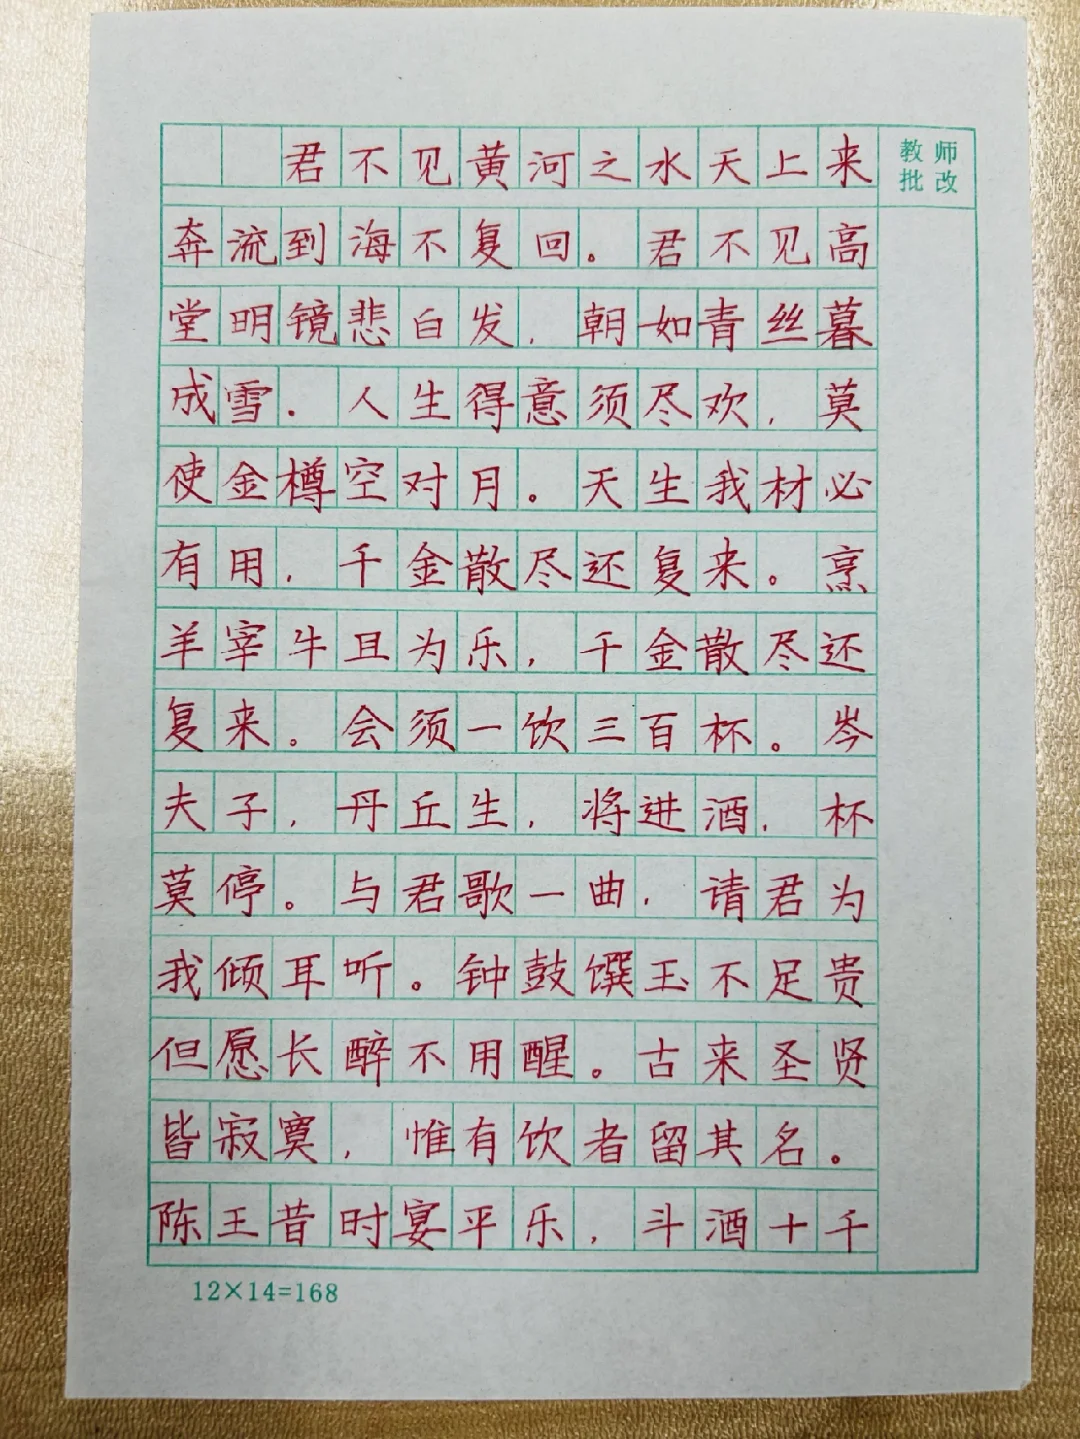 君不见黄河之水天上来
教师
批改
奔流到海不复回。君不见高
堂明镜悲白发，朝如青丝暮
成雪．人生得意须尽欢，莫
使金樽空对月。天生我材必
有用，千金散尽还复来。烹
羊宰牛且为乐，千金散尽还
复来。会须一饮三百杯。岑
夫子，丹丘生，将进酒，杯
莫停。与君歌一曲，请君为
我倾耳听。钟鼓馔玉不足贵
但愿长醉不用醒。古来圣贤
皆寂寞，惟有饮者留其名。
陈王昔时宴平乐，斗酒十千
12×14=168